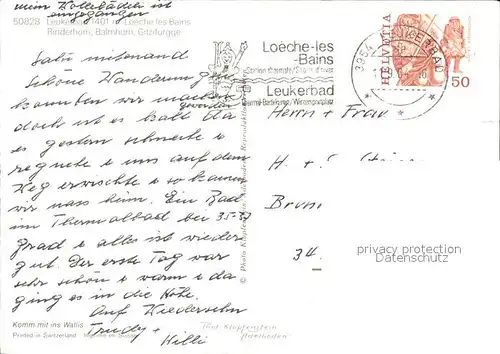 mein Kollegädeli ist
eingegangen
50828 Leukerbad 1401 m Loèche-les-Bains
Rinderhorn, Balmhorn, Gitzifurgge
Salü mitenand
Schöne Wanderung
konnten wir machen
doch ist es kalt geworden da
es gestern schneite &
regnete & uns auf dem
Weg erwischte & so kamen
wir nass heim. Ein Bad
im Thermalbad bei 35-37
Grad & alles ist wieder
gut. Der erste Tag war
sehr schön & warm & da
ging es in die Höhe.
Auf Wiedersehn
Trudy +
Willi
Komm mit ins Wallis
Printed in Switzerland
Photo Klopfenstein, Adelboden
Loèche-les
-Bains
Leukerbad
3954 LEUKERBAD
HELVETIA
50
Herrn + Frau
H. +
34
privacy protection
Postcards
Photo Klopfenstein
Adelboden